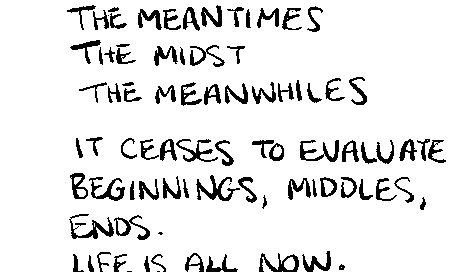 THE MEANTIMES
THE MIDST
THE MEANWHILES
IT CEASES TO EVALUATE
BEGINNINGS, MIDDLES,
ENDS.
LIFE IS ALL NOW.